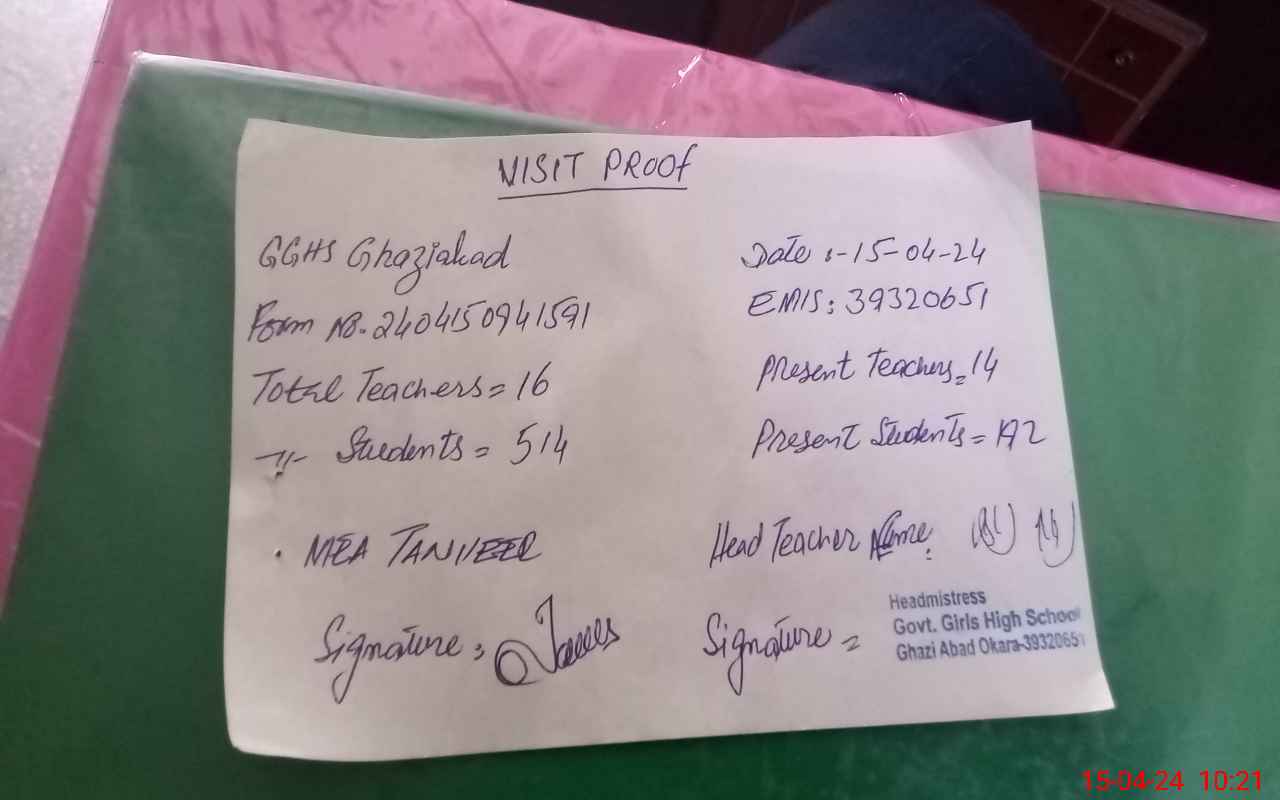 VISIT PROOF
GGHS Ghaziabad
Date :-15-04-24
Form No. 2404150941591
EMIS: 39320651
Total Teachers = 16
Present Teachers = 14
-11- Students = 514
Present Students =
MEA TANVEER
Head Teacher Name:
Signature :
Signature =
Headmistress
Govt. Girls High School
Ghazi Abad Okara-39320651
15-04-24 10:21